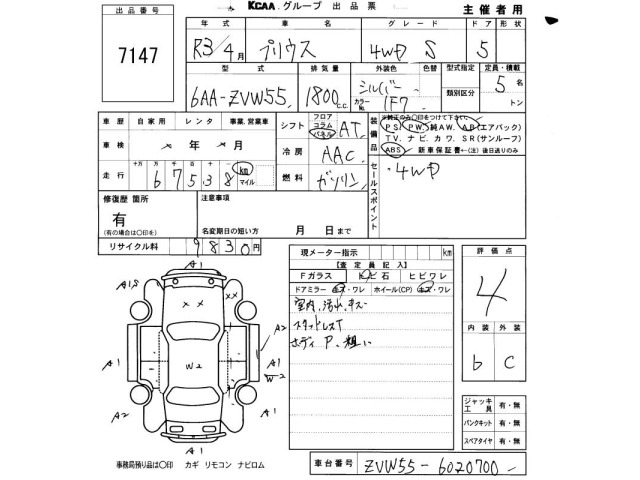 出品番号
7147
KCAA グループ 出品票
主催者用
年式 車名 グレード ドア
R3/4月 プリウス 4WD S 5
型式 排気量 外装色 色替 型式指定 定員・積載
6AA-ZVW55 1800c.c. シルバー カラーNo. 1F7 類別区分 5名 トン
車歴 自家用 レンタ 事業.営業車
シフト フロア コラム パネル AT
装備品
※純正のみ○印をつけて下さい。
PS PW 純AW. AB(エアバック)
TV. ナビ. カワ. SR(サンルーフ)
ABS 新車保証書←(注)後日送りのみ
車検 年 月
冷房 AAC
走行 十万 万 千 百 十 km マイル
6 7 5 3 8
燃料 ガソリン
セールスポイント
・4WD
修復歴 箇所
有
(有の場合は○印を)
注意事項
名変期日の短い方 月 日まで
リサイクル料 9830円
現メーター指示 km
【査定員記入】
Fガラス トビ石 ヒビワレ
ドアミラー キズ・ワレ ホイール(CP) キズ・ワレ
室内.汚レ.キズー
スタッドレスT
ボディ P.粗い
評価点
4
内装 外装
b C
A1
A1
A1,S
x x
xx
A2
A1
W2
A1
W2
A1
A2
A1
ジャッキ工具 有・無
パンクキット 有・無
スペアタイヤ 有・無
事務局預り品は○印 カギ リモコン ナビロム
車台番号 ZVW55-6020700